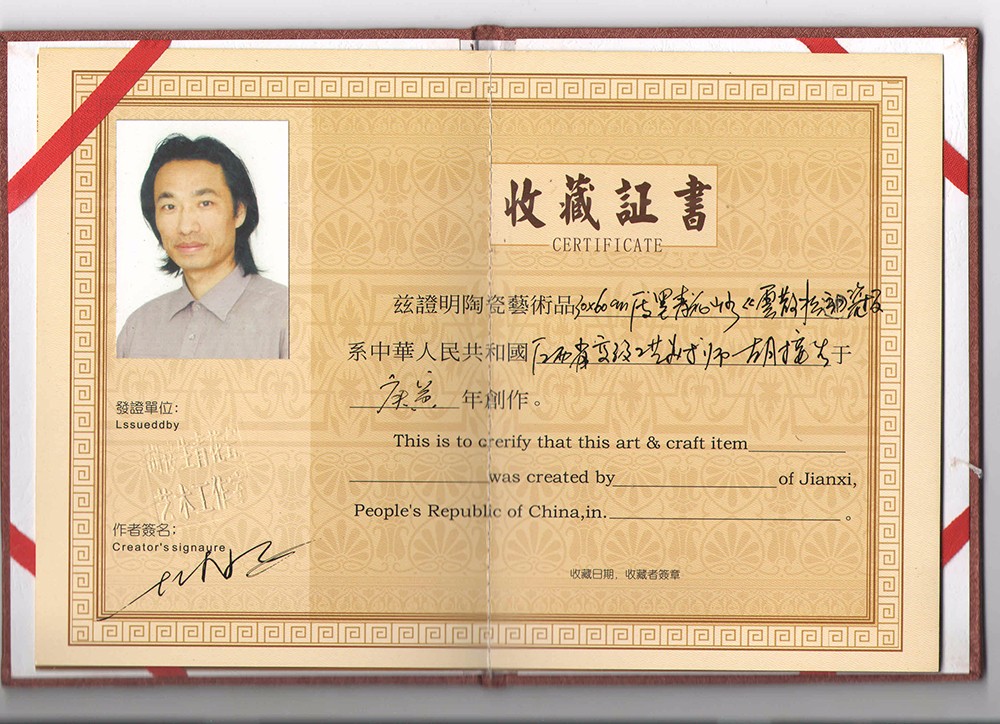 收藏証書
CERTIFICATE
茲證明陶瓷藝術品
系中華人民共和國江西省高級工艺美术师胡接生于
庚寅年創作。
This is to crerify that this art & craft item
was created by of Jianxi,
People's Republic of China,in. 。
發證單位:
Lssueddby
艺术工作室
作者簽名:
Creator's signaure
收藏日期,收藏者簽章